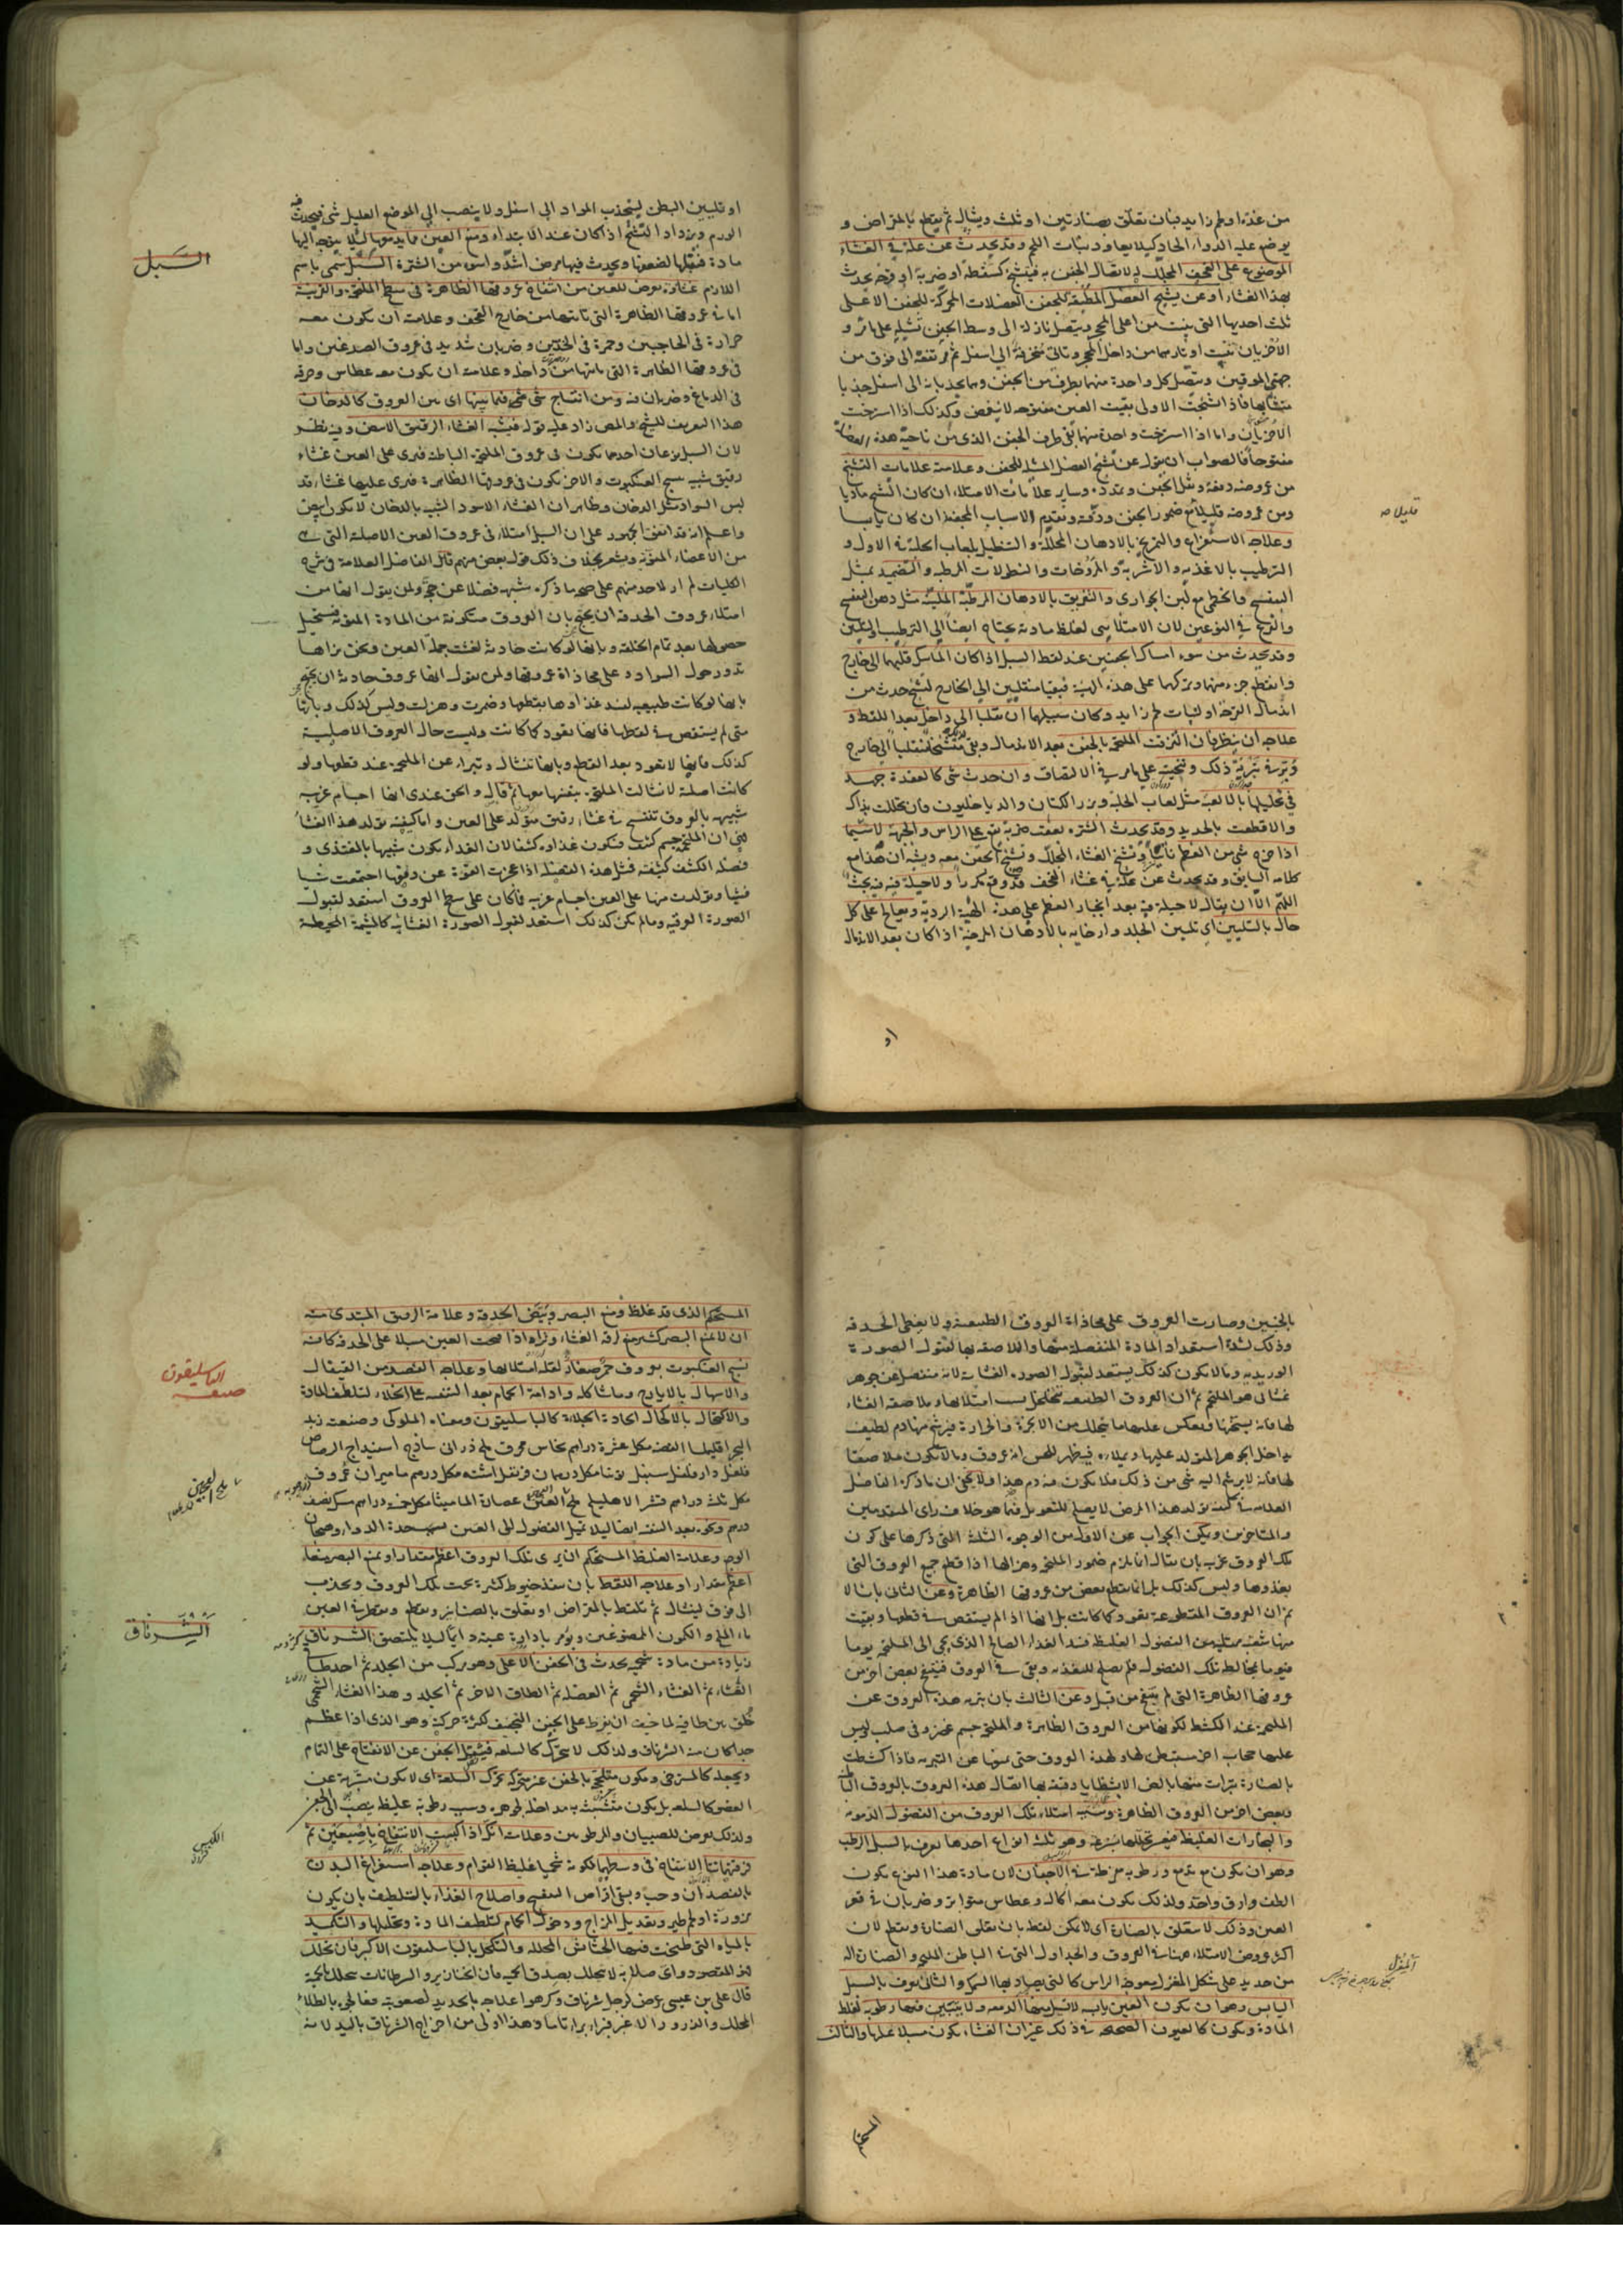 من غدة او لحم زايد فبان يعلّق بصنارتين او ثلث ويشال ثم يقطع بالمقراض و
يوضع عليه الدواء الحاد كيلا يعاود ونبات اللحم وقد يحدث عن علة في الغشاء
الموضوع على القحف المجلل له لاتصال الجفن به فيتشنج كسقطة او ضربة او قرحة يحدث
بهذا الغشاء او عن تشنج العضل المطبقة للجفن العضلات المحركة للجفن الاعلى
ثلث احديها التي تنبت من اعلى المحجر ويتصل نازلة الى وسط الجفن تشيله على
الاخريان تنبت اوتارهما من داخل المحجر وتاتي منحرفة الى اسفل ثم مرتفعة الى فوق من
جهتي الموقين ويتصل كل واحدة منهما بطرف من الجفن وهما يجذبانه الى اسفل جذبا
متشابها فاذا تشنجت الاولى بقيت العين مفتوحة لا تغمض وكذلك اذا استرخت
الاخريان واما اذا استرخت واحدة منهما بقى طرف الجفن الذي من ناحية هذه العضلة
مفتوحا فالصواب ان يقول عن تشنج العضل المشيلة للجفن وعلامته علامات التشنج
من عروضه دفعة وثقل الجفن وتمدده وساير علامات الامتلاء ان كان التشنج ماديا
ومن عروضه قليلا مع ضمور الجفن ودقته وتقدم الاسباب المجففة ان كان يابسا
قليلا صح
وعلاجه الاستفراغ والتمريخ بالادهان المحللة والتنطيل بلعاب الحلبة في الاول و
الترطيب بالاغذية والاشربة والمروخات والنطولات المرطبة والتضميد بمثل
البنفسج والخطمي مع لبن الجواري والتعريق بالادهان المرطبة الملينة مثل دهن البنفسج
والقرع في النوعين لان الامتلايى لغلظ مادته يحتاج ايضا الى الترطيب والتليين
وقد يحدث من سوء امساك الجفنين عند لقط السبل اذا كان الماسك قلبهما الى خارج
وانقطع جزء منهما وتركهما على هذه الهيئة فبقيا منقلبين الى الخارج لتشنج حدث من
اندمال القرحة او لنبات لحم زايد وكان سبيلهما ان يقلبا الى داخل بعد اللقط و
علاجه ان ينظر فان التزقت الملتحمة بالجفن بعد الاندمال وبقى متشنجا منقلبا الى خارج
ذلك وتنحيته على ما مر في الالتصاق وان حدث شى كالعقدة جهد
في تحليلها بالالعبة مثل لعاب الحلبة وبزر الكتان والدياخليون فان تحللت بذاك
والا قطعت بالحديد وقد يحدث الشترة بعقب ضربة تقع على الراس والجبهة لا سيما
اذا خرج شى من العظم وتشنج الغشاء المجلل وتشنج الجفن معه ويشبه ان هذا مع
كلامه السابق وقد يحدث عن علة في غشاء القحف قد وقع مكررا ولا حيلة فيه فيه بحث
اللهم الا ان يقال لا حيلة فيه بعد انجبار العظم على هذه الهيئة الردية ويعالج على كل
حال بالتليين اي تليين الجلد وارخايه بالادهان المرخية اذا كان بعد الاندمال
او
السبل
او تليين البطن لينجذب المواد الى اسفل ولا ينصب الى الموضع العليل شى فيحدث فيه
الورم ويزداد التشنج اذا كان عند الابتداء ومنع العين مما يدمعها لئلا يتوجه اليها
مادة فتقبلها لضعفها ويحدث فيها مرض اشد واسوء من الشترة السبل سمى باسم
اللازم غشاوة يعرض للعين من انتفاخ عروقها الظاهرة في سطح الملتحمة والقرنية
اما في عروقها الظاهرة التي تاتيها من خارج القحف وعلامته ان يكون معه
حرارة في الحاجبين وحمرة في الخدين وضربان شديد في عروق الصدغين واما
في عروقها الظاهرة التي ياتيها من داخله وعلامته ان يكون معه عطاس وحرقة
في الدماغ وضربان فيه ومن انتساج شى فيما بينها اى بين العروق كالدخان
هذا التعريف للشيخ والمص زاد عليه قوله فيشبه الغشاء الرقيق الابيض وفيه نظر
لان السبل نوعان احدهما يكون في عروق الملتحمة الباطنة فيرى على العين غشاء
رقيق شبيه بنسج العنكبوت والاخر يكون في عروقها الظاهرة فيرى عليها غشاء قد
لبس السواد مثل الدخان وظاهر ان الغشاء الاسود الشبيه بالدخان لا يكون ابيض
واعلم انه قد اتفق الجمهور على ان السبل امتلاء في عروق العين الاصلية التي هي
من الاعضاء المنوية ويشعر بخلاف ذلك قول بعض منهم قال الفاضل العلامة في شرح
الكليات لم ار لاحد منهم على صحة ما ذكره شبهة فضلا عن حجة ولمن يقول انها من
امتلاء عروق الحدقة ان يحتج بان العروق متكونة من المادة المنوية فيستحيل
حصولها بعد تمام الخلقة وبانها لو كانت حادثة لغشت جملة العين ونحن نراها
تدور حول السواد وعلى محاذاة عروقها ولمن يقول انها عروق حادثة ان يحتج
بانها لو كانت طبيعية لفسد غذاوها بقطعها وضمرت وهزلت وليس كذلك وبانها
متى لم يستقص في لقطها فانها تعود كما كانت وليست حال العروق الاصلية
كذلك فانها لا تعود بعد القطع وبانها تنشال وتتبراء عن الملتحمة عند قطعها ولو
كانت اصلية لانشالت الملتحمة بنفسها معها ثم قال والحق عندي انها اجسام غريبة
شبيهة بالعروق تنتسج في غشاء رقيق متولد على العين واما كيفية تولد هذا الغشاء
فهي ان الملتحمة جسم كثيف فيكون غذاوه كثيفا لان الغذاء يكون شبيها بالمغتذى و
فضلة الكثيف كثيفة فمثل هذه الفضلة اذا عجزت القوة عن دفعها اجتمعت شيئا
فشيئا وتولدت منها على العين اجسام غريبة فما كان على سطح العروق استعد لقبول
الصورة العرقية وما لم يكن كذلك استعد لقبول الصورة الغشائية كالمشيمة المحيطة
بالجنين وصارت العروق على محاذاة العروق الطبيعية ولا يغطى الحدقة
وذلك لشدة استعداد المادة المنفصلة منها والملاصقة بها لقبول الصورة
الوريدية وما لا يكون كذلك يستعد لقبول الصورة الغشائية لانه منفصل عن جوهر
غشائي هو الملتحم ثم ان العروق الطبيعية تتخلخل بسبب امتلائها وملاصقة الغشاء
لها فانه يسخنها ويعكس عليها ما يتحلل من الابخرة والحرارة فيرشح منها دم لطيف
داخل الجوهر المتولد عليها ويملاءه فيظهر للحس انه عروق وما لا يكون ملاصقا
لها فانه لا يرشح اليه شى من ذلك فلا يكون فيه دم هذا ولا يخفى ان ما ذكره الفاضل
العلامة في كيفية تولد هذا المرض لا يصلح للتعويل فيما هو خلاف راى المتقدمين
والمتاخرين ويمكن الجواب عن الاول من الوجوه الثلثة التي ذكرها على كون
تلك العروق غريبة بان يقال انما يلزم ضمور الملتحمة وهزالها اذا قطع جميع العروق التي
يغذوها وليس كذلك بل انما يقطع بعض من عروقها الظاهرة وعن الثاني بانا لا
نم ان العروق المقطوعة يعود كما كانت بل انها اذا لم يستقص في قطعها وبقيت
منها شعب ممتلية من الفضول الغليظة فسد الغذاء الصالح الذي يجى الى الملتحمة يوما
فيوما بمخالطة تلك الفضول فلم يصلح للتغذية وبقى في العروق فينتفخ بعض اخر من
عروقها الظاهرة التي لم ينتفخ من قبل وعن الثالث بان تبرية هذه العروق عن
الملتحمة عند الكشط لكونها من العروق الظاهرة والملتحم جسم غضروفي صلب ليس
عليها حجاب اخر مستبطن لها ولهذه العروق حتى يمنعها عن التبرية فاذا كشطت
بالصنارة تبرات منها بالضرورة الا بشظايا دقيقة بها اتصال هذه العروق بالعروق الباطنة
وبعض اخر من العروق الظاهرة وسببه امتلاء تلك العروق من الفضول الدموية
والبخارات الغليظة فيعسر تحللها وهو ثلثة انواع احدها يعرف بالسبل الرطب
وهو ان يكون مع تدمع ورطوبة مفرطة في الاجفان لان مادة هذا النوع يكون
الطف وارق واحد ولذلك يكون معه اكال وعطاس متواتر وضربان في قعر
العين وذلك لا يتعلق بالصنارة اى لا يمكن لقطه بان يعلق الصنارة ويقطع لان
اكثر عروض الامتلاء هنا في العروق والجداول التي في الباطن الملتحم والصنارة الة
من حديد على شكل المغزل معوجة الراس كالتي يصاد بها السمك والثاني يعرف بالسبل
المغزل
اليابس وهو ان يكون العين يابسة لا تسيل منها الدمعة ولا يتبين فيها رطوبة لغلظ
المادة ويكون كالعيون الصحيحة في ذلك غير ان الغشاء يكون مسبلا عليها والثالث
المستحكم
المستحكم الذي قد غلظ ومنع البصر وبيّض الحدقة وعلامة الرقيق المبتدى منه
ان لا يمنع البصر كثير منع لرقة الغشاء وتراه اذا فتحت العين مسبلا على الحدقة كانه
نسج العنكبوت بعروق حمر صغار لقلة امتلائها وعلاجه الفصد من القيفال
الباسليقون
صنعة
والاسهال بالايارج وما شاكله وادامة الحمام بعد التنقية على الخلاء لتلطيف المادة
والاكتحال بالاكحال الحادة الجلاءة كالباسليقون ومعناه الملوكى وصنعته زبد
البحر اقليميا الفضة مكل عشرة دراهم نحاس محرق ملح ذرانى ساذج اسفيداج الرصاص
فلفل دارفلفل سنبل نوشا مكل درهمان قرنفل اشنه مكل درهم ماميران عروق
مكل ثلث دراهم قشر الاهليلج ملح العجين عصارة الماميثا مكل خمسة دراهم مسك نصف
ملح العجين
درهم ونحوه بعد التنقية ايضا ليلا تميل الفضول الى العين بسبب حدة الدواء وهيجان
الوجع وعلامة الغليظ المستحكم ان يرى تلك العروق اعظم مقدارا ويمنع البصر منعا
اعظم مقدارا وعلاجه اللقط بان ينفذ خيوط كثيرة تحت تلك العروق ويجذب
الى فوق لينشال ثم تلتقط بالمقراض او يعلق بالصنانير ويقطع ويقطر في العين
ماء الملح والكمون الممضوغين ويؤمر بادارة عينه دايما ليلا يلتصق الشرناق
الشرناق
زيادة من مادة شحمية يحدث في الجفن الاعلى وهو مركب من الجلد ثم احد طاقى
الغشاء ثم الغشاء الشحمى ثم العضلة ثم الطاق الاخر ثم الجلد وهذا الغشاء الشحمى
خلق بين طاقيه لما خيف ان يفرط على الجفن التجفف لكثرة حركته وهو الذي اذا عظم
جدا كان منه الشرناق ولذلك لا يتحرك كالسلعة فيثقل الجفن عن الانفتاح على التمام
ويجعله كالمسترخى ويكون ملتحما بالجفن غير متحرك تحرك السلعة اى لا يكون متبرية عن
العضو كالسلعة بل يكون متشبثة به مداخلة لجوهره وسببه رطوبة غليظة ينصب الى الجفن
ولذلك يعرض للصبيان والمرطوبين وعلامته انك اذا كبست الانتفاخ باصبعين ثم
الكبس
فرقتهما نتأ الانتفاخ في وسطهما لكونه شحميا غليظ القوام وعلاجه استفراغ البدن
بالفصد ان وجب وسقى اقراص البنفسج واصلاح الغذاء بالتلطيف بان يكون
مزورة او لحم طير وتعديل المزاج ودخول الحمام لتلطيف المادة وتحليلها والتكميد
بالمياه التي طبخت فيها الحشائش المحللة والتكحل بالباسليقون الاكبر فان تحلل
فهو المقصود واى صلابة لا يتحلل بصدق الحمية فان الخنازير والسرطانات يتحلل بالحمية
قال علي بن عيسى عرض لرجل شرناق وكرهوا علاجه بالحديد لصعوبته فعالجى بالطلاء
المحلل والذرور الاغبر فبراء براء تاما وهذا اولى من اخراج الشرناق باليد لانه